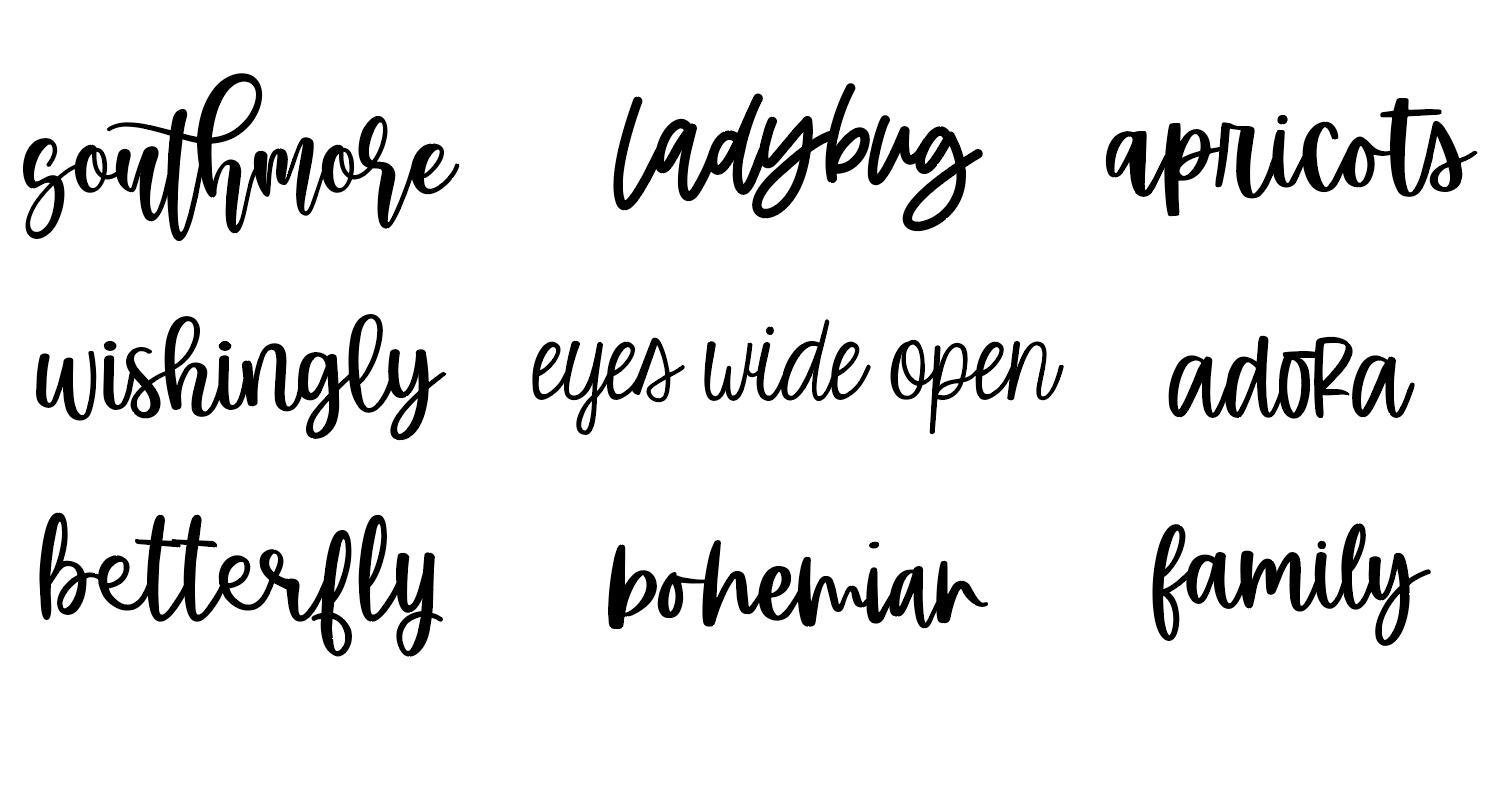 southmore ladybug apricots
wishingly eyes wide open adora
betterfly bohemian family